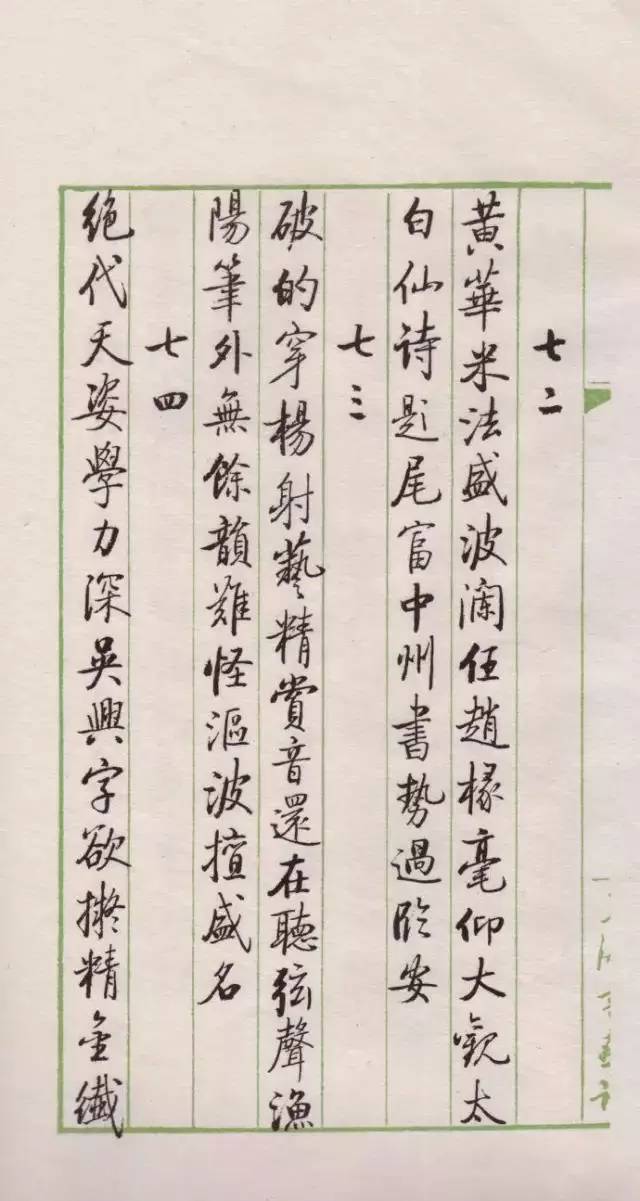 七二
黄華米法盛波澜任趙椽毫仰大觀太
白仙诗題尾富中州書势過臨安
七三
破的穿楊射藝精賞音還在聽弦聲漁
陽筆外無餘韻難怪漚波擅盛名
七四
绝代天姿學力深吳興字欲擬精金纖